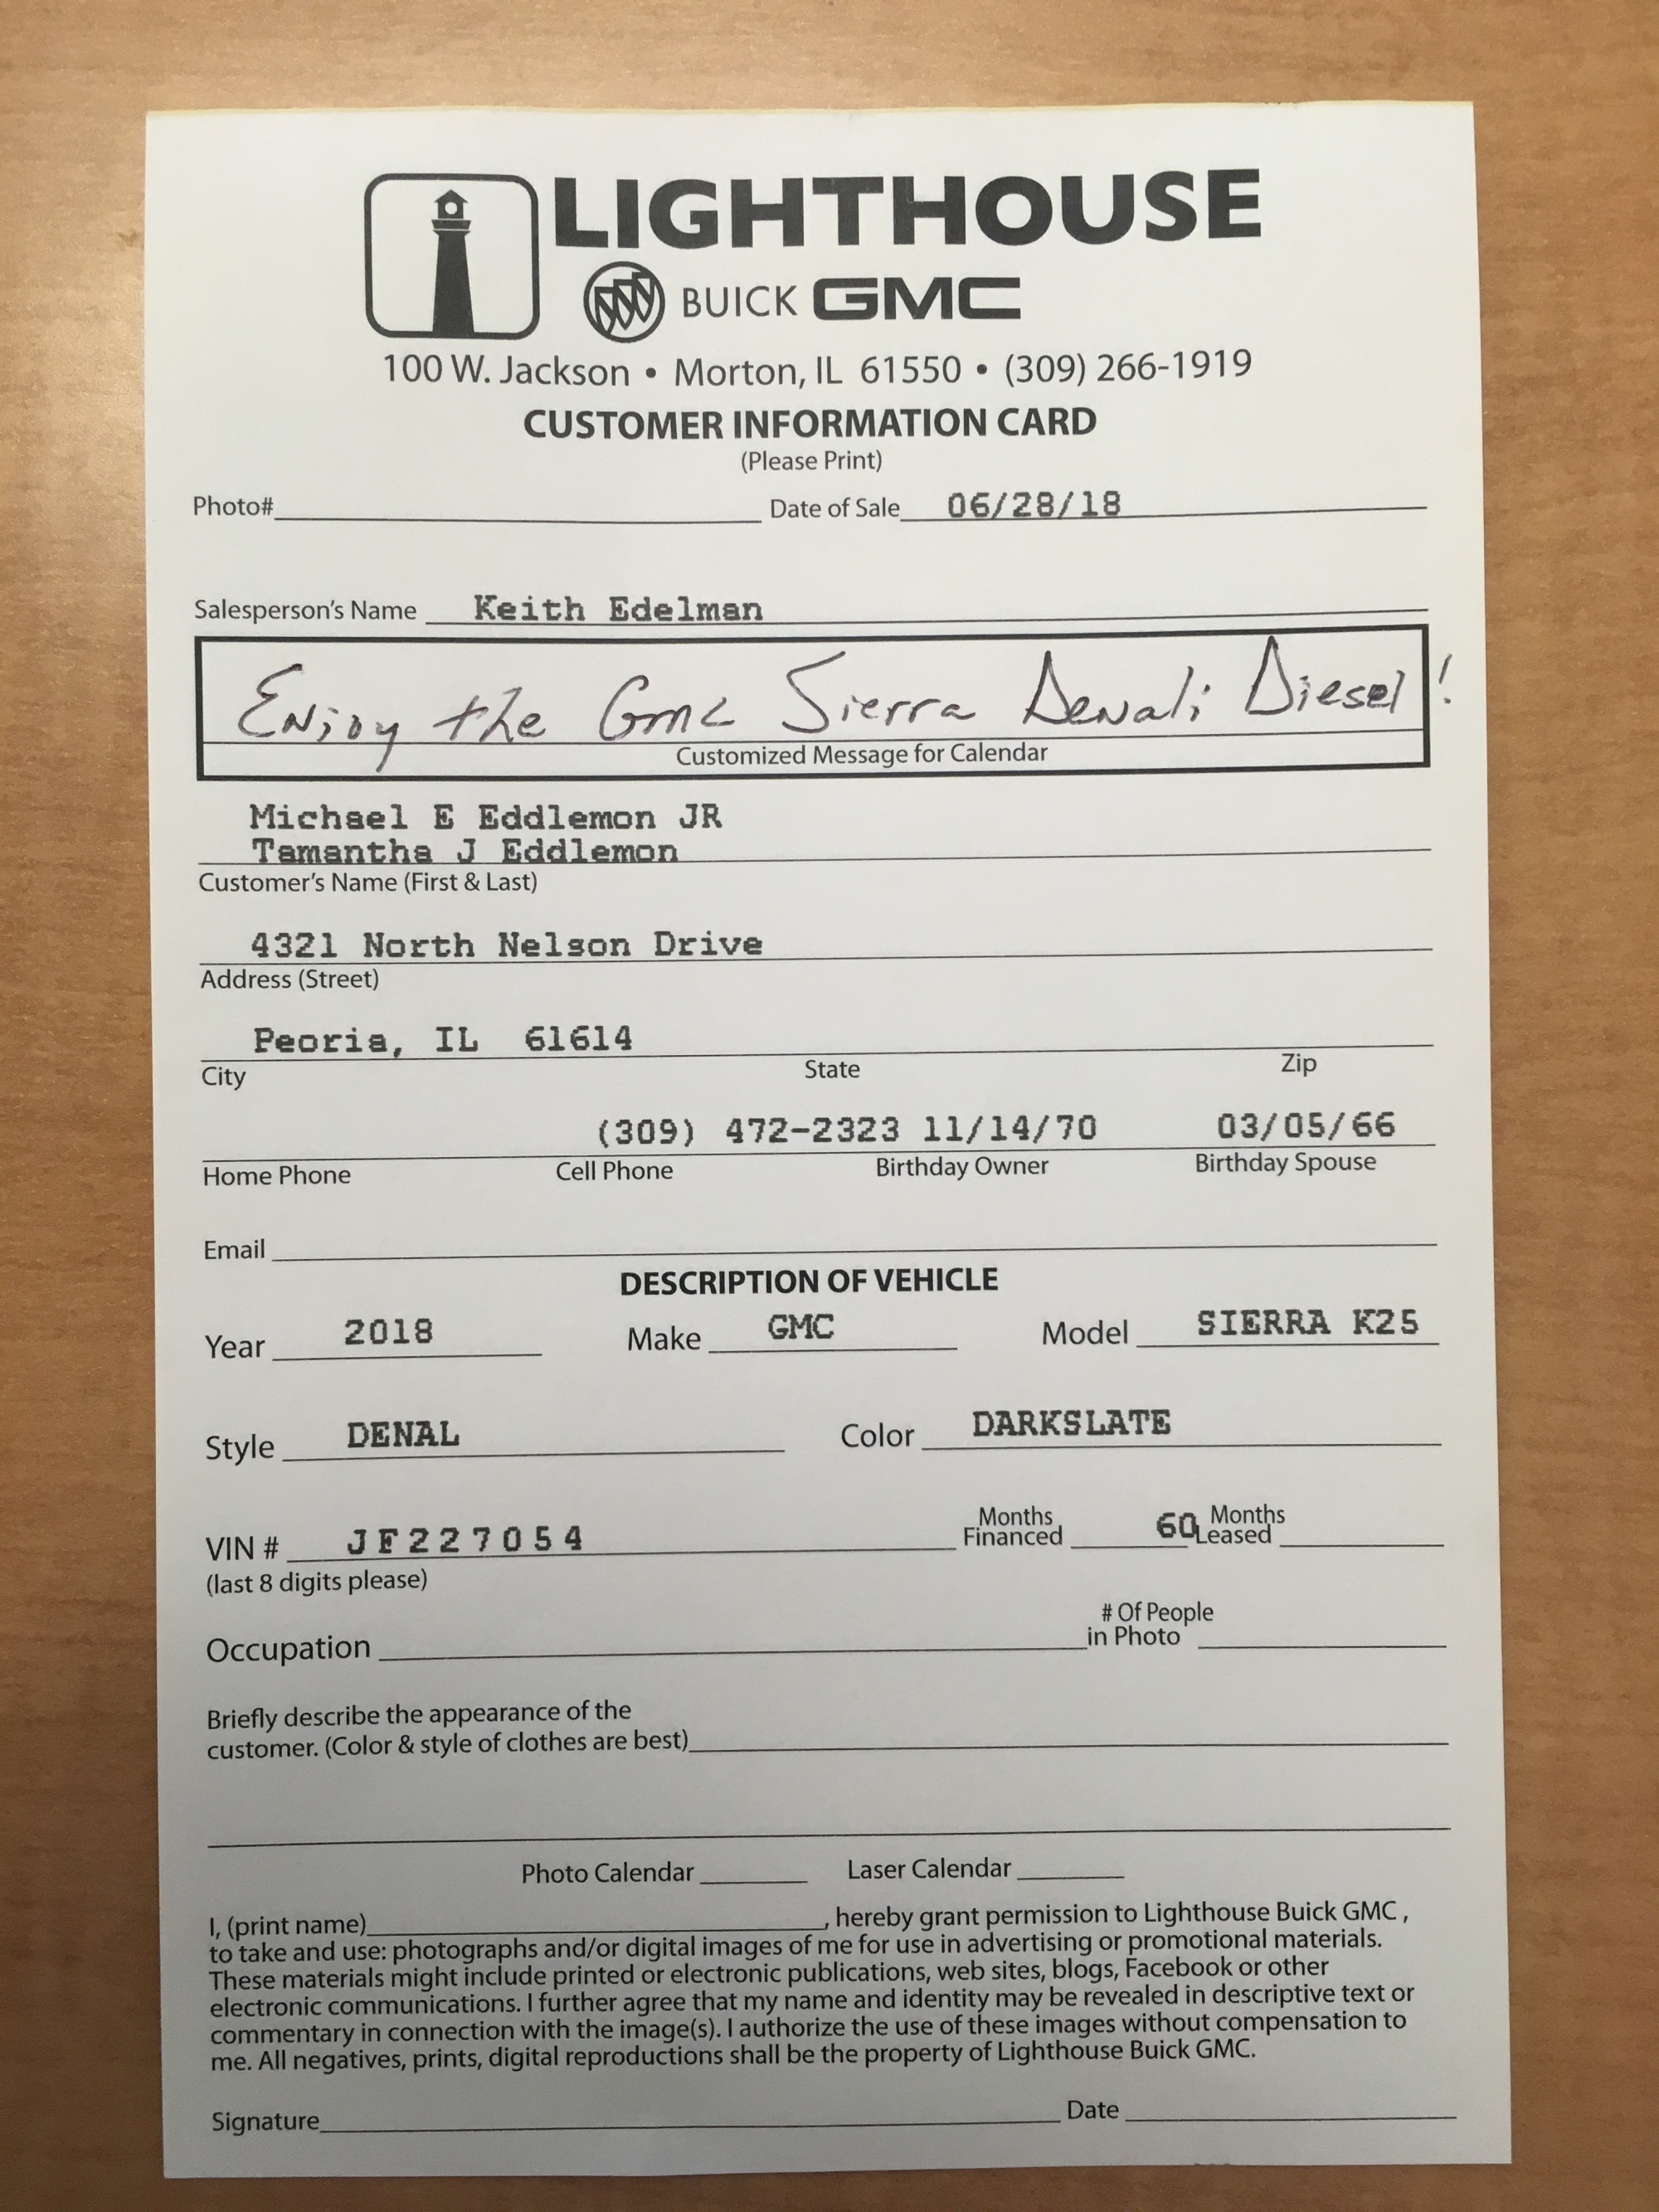 LIGHTHOUSE
BUICK GMC
100 W. Jackson • Morton, IL 61550 • (309) 266-1919
CUSTOMER INFORMATION CARD
(Please Print)
Photo# Date of Sale 06/28/18
Salesperson's Name Keith Edelman
Enjoy the Gmc Sierra Denali Diesel!
Customized Message for Calendar
Michael E Eddlemon JR
Tamantha J Eddlemon
Customer's Name (First & Last)
4321 North Nelson Drive
Address (Street)
Peoria, IL 61614
City State Zip
(309) 472-2323 11/14/70 03/05/66
Home Phone Cell Phone Birthday Owner Birthday Spouse
Email
DESCRIPTION OF VEHICLE
Year 2018 Make GMC Model SIERRA K25
Style DENAL Color DARKSLATE
VIN # JF227054 Months Financed 60 Months Leased
(last 8 digits please)
Occupation # Of People in Photo
Briefly describe the appearance of the
customer. (Color & style of clothes are best)
Photo Calendar Laser Calendar
I, (print name) , hereby grant permission to Lighthouse Buick GMC ,
to take and use: photographs and/or digital images of me for use in advertising or promotional materials.
These materials might include printed or electronic publications, web sites, blogs, Facebook or other
electronic communications. I further agree that my name and identity may be revealed in descriptive text or
commentary in connection with the image(s). I authorize the use of these images without compensation to
me. All negatives, prints, digital reproductions shall be the property of Lighthouse Buick GMC.
Signature Date